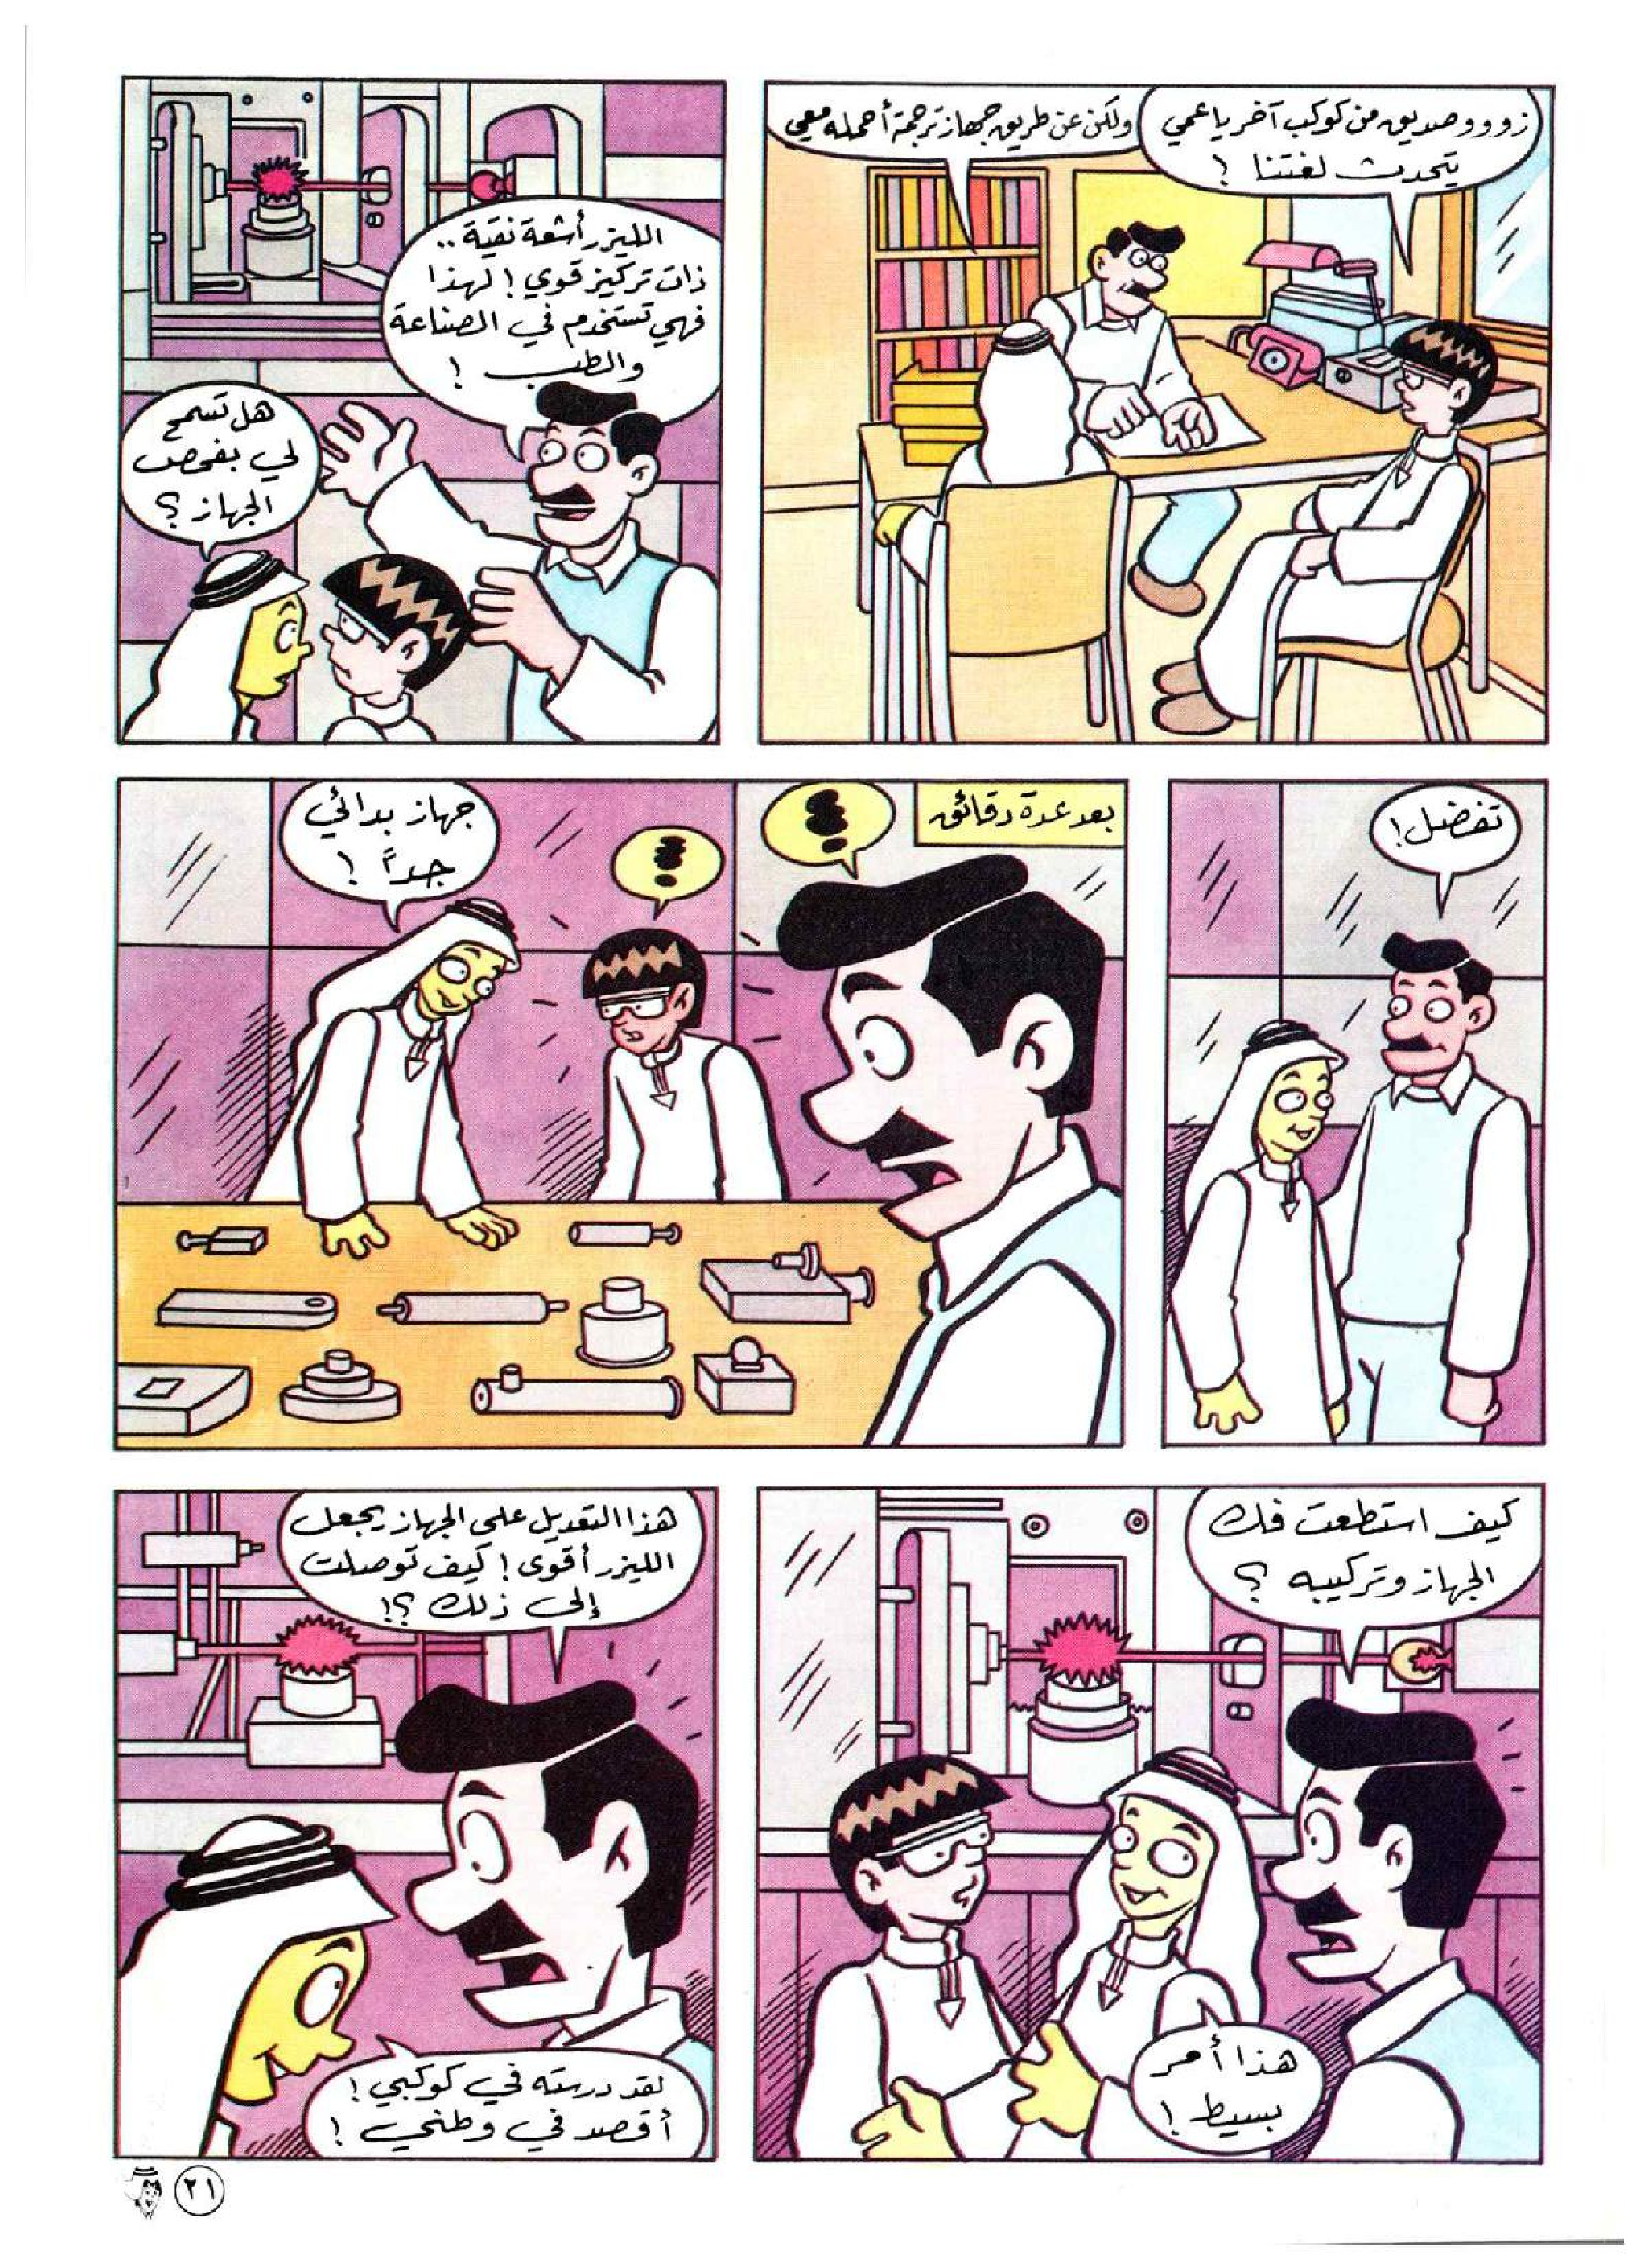 زووو صديق من كوكب آخر يا عمي
يتحدث لغتنا !
ولكن عن طريق جهاز ترجمة أحمله معي
الليزر أشعة نقية ..
ذات تركيز قوي ! لهذا
فهي تستخدم في الصناعة
والطب !
هل تسمح
لي بفحص
الجهاز ؟
تفضل !
بعد عدة دقائق
!!!
!!!
جهاز بدائي
جداً !
كيف استطعت فك
الجهاز وتركيبه ؟
هذا أمر
بسيط !
هذا التعديل على الجهاز يجعل
الليزر أقوى ! كيف توصلت
إلى ذلك ؟!
لقد درسته في كوكبي !
أقصد في وطني !
٢١